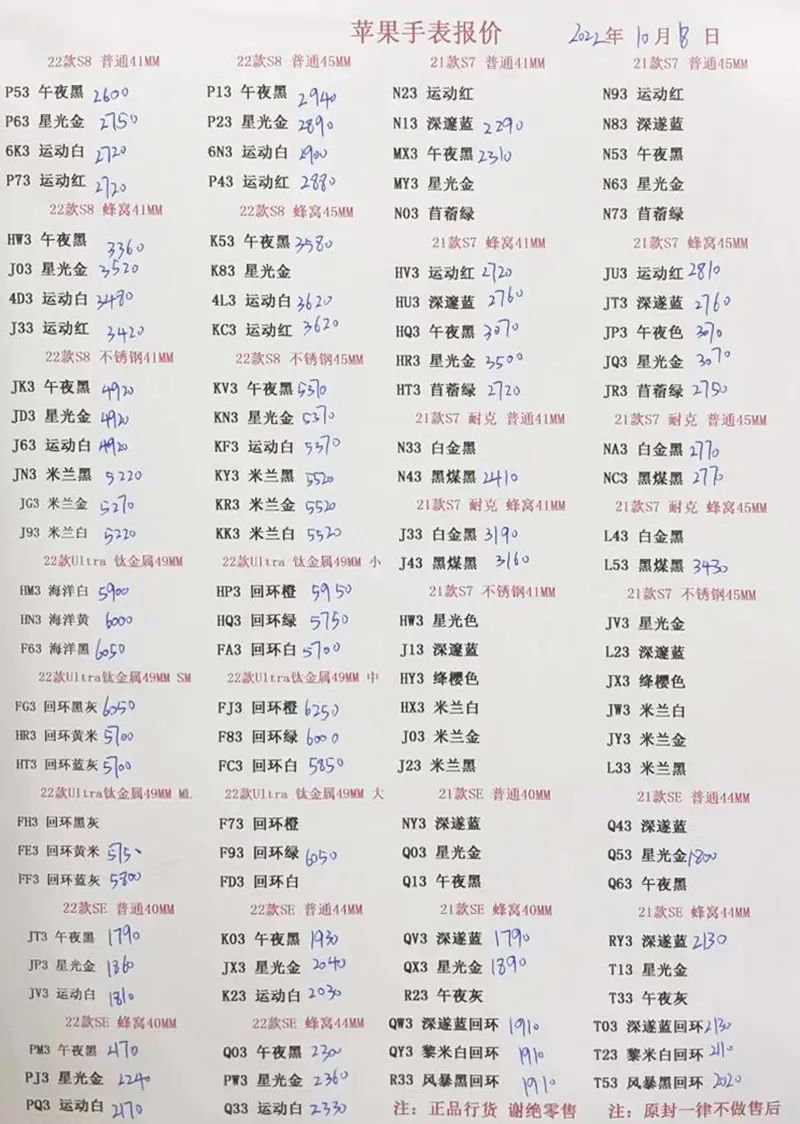 苹果手表报价 2022年10月8日
22款S8 普通41MM
P53 午夜黑 2600
P63 星光金 2750
6K3 运动白 2720
P73 运动红 2720
22款S8 蜂窝41MM
HW3 午夜黑 3360
J03 星光金 3520
4D3 运动白 3480
J33 运动红 3420
22款S8 不锈钢41MM
JK3 午夜黑 4920
JD3 星光金 4920
J63 运动白 4920
JN3 米兰黑 5220
JG3 米兰金 5270
J93 米兰白 5220
22款Ultra 钛金属49MM
HM3 海洋白 5900
HN3 海洋黄 6000
F63 海洋黑 6050
22款Ultra钛金属49MM SM
FG3 回环黑灰 6050
HR3 回环黄米 5700
HT3 回环蓝灰 5700
22款Ultra钛金属49MM ML
FH3 回环黑灰
FE3 回环黄米
FF3 回环蓝灰 5800
22款SE 普通40MM
JT3 午夜黑 1790
JP3 星光金 1860
JV3 运动白 1810
22款SE 蜂窝40MM
PM3 午夜黑
PJ3 星光金 2240
PQ3 运动白 2170
22款S8 普通45MM
P13 午夜黑 2940
P23 星光金 2890
6N3 运动白 2900
P43 运动红 2880
22款S8 蜂窝45MM
K53 午夜黑 3580
K83 星光金
4L3 运动白 3620
KC3 运动红 3620
22款S8 不锈钢45MM
KV3 午夜黑 5370
KN3 星光金 5370
KF3 运动白 5370
KY3 米兰黑 5520
KR3 米兰金 5520
KK3 米兰白 5520
22款Ultra 钛金属49MM 小
HP3 回环橙 5950
HQ3 回环绿 5750
FA3 回环白 5700
22款Ultra钛金属49MM 中
FJ3 回环橙 6250
F83 回环绿 6000
FC3 回环白 5850
22款Ultra 钛金属49MM 大
F73 回环橙
F93 回环绿 6050
FD3 回环白
22款SE 普通44MM
K03 午夜黑 1930
JX3 星光金 2040
K23 运动白 2030
22款SE 蜂窝44MM
Q03 午夜黑 2300
PW3 星光金 2360
Q33 运动白 2330
21款S7 普通41MM
N23 运动红
N13 深邃蓝 2290
MX3 午夜黑 2310
MY3 星光金
N03 苜蓿绿
21款S7 蜂窝41MM
HV3 运动红 2720
HU3 深邃蓝 2760
HQ3 午夜黑 3070
HR3 星光金 3500
HT3 苜蓿绿 2720
21款S7 耐克 普通41MM
N33 白金黑
N43 黑煤黑 2410
21款S7 耐克 蜂窝41MM
J33 白金黑 3190
J43 黑煤黑 3160
21款S7 不锈钢41MM
HW3 星光色
J13 深邃蓝
HY3 绛樱色
HX3 米兰白
J03 米兰金
J23 米兰黑
21款SE 普通40MM
NY3 深遂蓝
Q03 星光金
Q13 午夜黑
21款SE 蜂窝40MM
QV3 深遂蓝 1790
QX3 星光金 1890
R23 午夜灰
QW3 深遂蓝回环 1910
QY3 黎米白回环 1910
R33 风暴黑回环 1910
注：正品行货 谢绝零售
21款S7 普通45MM
N93 运动红
N83 深遂蓝
N53 午夜黑
N63 星光金
N73 苜蓿绿
21款S7 蜂窝45MM
JU3 运动红 2810
JT3 深遂蓝 2760
JP3 午夜色 3070
JQ3 星光金 3070
JR3 苜蓿绿 2750
21款S7 耐克 普通45MM
NA3 白金黑 2770
NC3 黑煤黑 2770
21款S7 耐克 蜂窝45MM
L43 白金黑
L53 黑煤黑 3430
21款S7 不锈钢45MM
JV3 星光金
L23 深邃蓝
JX3 绛樱色
JW3 米兰白
JY3 米兰金
L33 米兰黑
21款SE 普通44MM
Q43 深遂蓝
Q53 星光金 1800
Q63 午夜黑
21款SE 蜂窝44MM
RY3 深遂蓝 2130
T13 星光金
T33 午夜灰
T03 深遂蓝回环 2130
T23 黎米白回环
T53 风暴黑回环 2020
注：原封一律不做售后